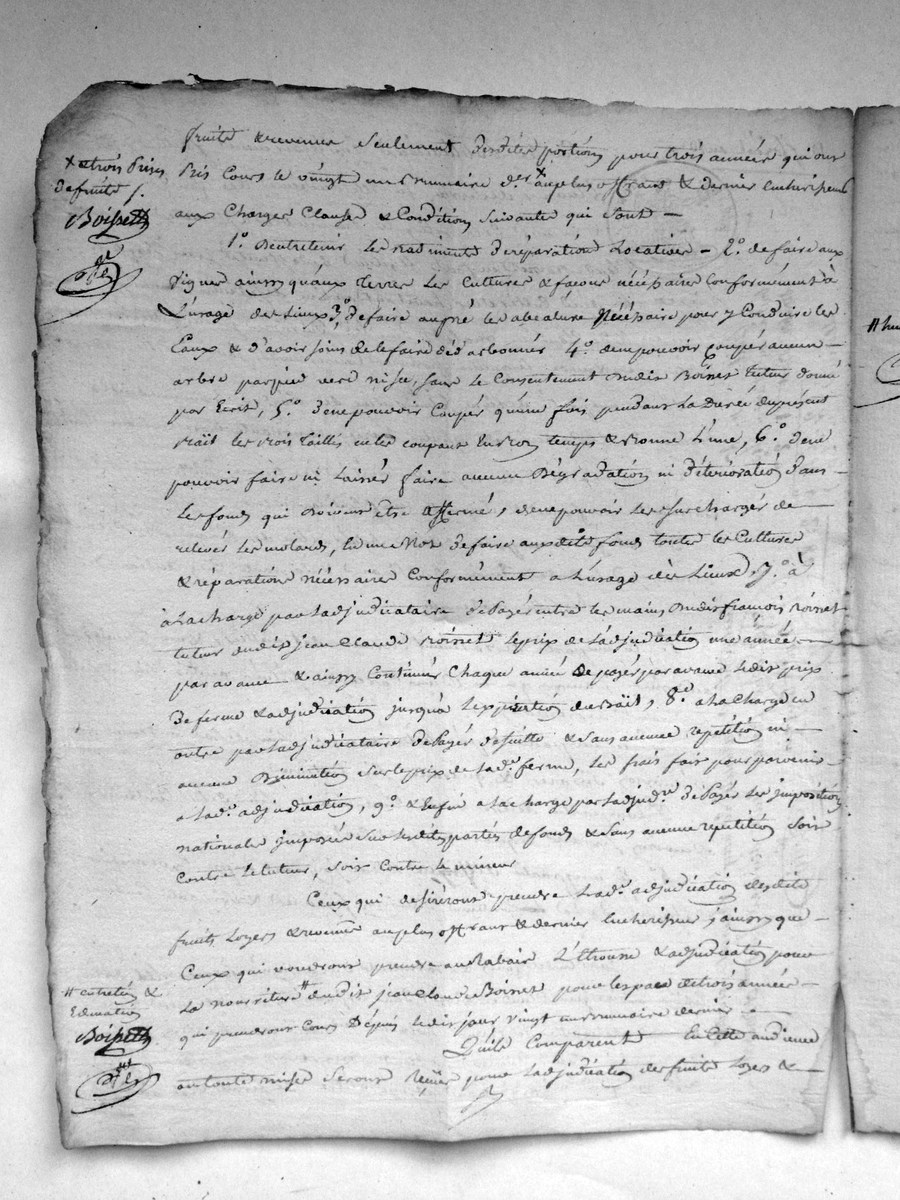 x & trois prises
de fruits /.
Boissett
fruits & revenus seulement desdites portions pour trois années qui ont
pris cours le vingt un brumaire der x au plus offrant & dernier encherisseur
aux charges clauses & conditions suivantes qui sont —
1.º d'entretenir les batiments de réparations locatives — 2.º de faire aux
vignes ainssy qu'aux terres les cultures & façons nécéssaires conformément à
l'usage des lieux 3.º de faire au pré les nécéssaires pour y conduire les
eaux & d'avoir soins de le faire 4.º de ne pouvoir couper aucun —
arbre par pied vert ni sec, sans le consentement dudit Boisset tuteur donné
par ecrit, 5.º de ne pouvoir couper qu'une fois pendant la durée du présent
bail les bois taillis en les coupant en bon temps & bonne lune, 6.º de ne
pouvoir faire ni laisser faire aucune dégradation ni détérioration dans —
les fonds qui doivent etre affermé, de ne pouvoir les surcharger de —
relever les molards, en un mot de faire auxdits fonds toutes les cultures
& réparations nécéssaires conformément a l'usage des lieux, 7.º à
à la charge par l'adjudicataire de payer entre les mains dudit françois Boisset
tuteur dudit jean Claude Boisset le prix de l'adjudication une année —
par avance & ainssy continuer chaque année de payer par avance ledit prix
de ferme & adjudication jusqu'à l'expiration du bail, 8.º a la charge en
outre par l'adjudicataire de payer de suitte & sans aucune repetition ni —
aucune diminution sur le prix de lad.e ferme, les frais fait pour parvenir
a lad.e adjudication, 9.º & enfin a la charge par l'adjud.re de payer les imposition
nationale imposée sur lesdits partés de fonds & sans aucune repetition soit
contre le tuteur, soit contre le mineur
Ceux qui desireront prendre lad.e adjudication desdits
fruits loyers & revenus au plus offrant & dernier encherisseur, ainssy que —
ceux qui voudront prendre au rabais l'étrousse & adjudication pour
la nourriture # dudit jean Claude Boisset pour l'espace de trois année —
qui prendront cours depuis ledit jour vingt un brumaire dernier —
# entretien &
education
Boissett
Qu'ils comparent en cette audience
ou toute mises seront reçues pour l'adjudication des fruits loyers & —